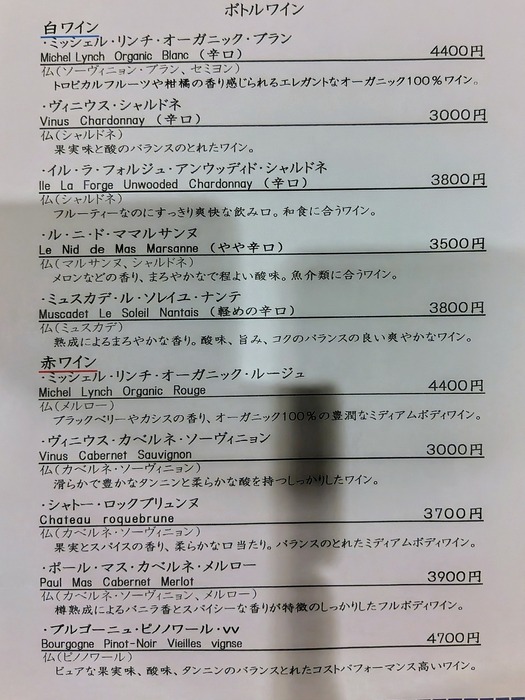 ボトルワイン
白ワイン
・ミッシェル・リンチ・オーガニック・ブラン
Michel Lynch Organic Blanc（辛口） 4400円
仏(ソーヴィニョン・ブラン、セミヨン)
トロピカルフルーツや柑橘の香り感じられるエレガントなオーガニック100%ワイン。
・ヴィニウス・シャルドネ
Vinus Chardonnay（辛口） 3000円
仏(シャルドネ)
果実味と酸のバランスのとれたワイン。
・イル・ラ・フォルジュ・アンウッディド・シャルドネ
Ile La Forge Unwooded Chardonnay（辛口） 3800円
仏(シャルドネ)
フルーティーなのにすっきり爽快な飲み口。和食に合うワイン。
・ル・ニ・ド・ママルサンヌ
Le Nid de Mas Marsanne（やや辛口） 3500円
仏(マルサンヌ、シャルドネ)
メロンなどの香り、まろやかなで程よい酸味。魚介類に合うワイン。
・ミュスカデ・ル・ソレイユ・ナンテ
Muscadet Le Soleil Nantais（軽めの辛口） 3800円
仏(ミュスカデ)
熟成によるまろやかな香り。酸味、旨み、コクのバランスの良い爽やかなワイン。
赤ワイン
・ミッシェル・リンチ・オーガニック・ルージュ
Michel Lynch Organic Rouge 4400円
仏(メルロー)
ブラックベリーやカシスの香り、オーガニック100%の豊潤なミディアムボディワイン。
・ヴィニウス・カベルネ・ソーヴィニョン
Vinus Cabernet Sauvignon 3000円
仏(カベルネ・ソーヴィニョン)
滑らかで豊かなタンニンと柔らかな酸を持つしっかりしたワイン。
・シャトー・ロックブリュンヌ
Chateau roquebrune 3700円
仏(カベルネ・ソーヴィニョン)
果実とスパイスの香り、柔らかな口当たり。バランスのとれたミディアムボディワイン。
・ポール・マス・カベルネ・メルロー
Paul Mas Cabernet Merlot 3900円
仏(カベルネ・ソーヴィニョン、メルロー)
樽熟成によるバニラ香とスパイシーな香りが特徴のしっかりしたフルボディワイン。
・ブルゴーニュ・ピノノワール・VV
Bourgogne Pinot-Noir Vieilles vignse 4700円
仏(ピノノワール)
ピュアな果実味、酸味、タンニンのバランスとれたコストパフォーマンス高いワイン。